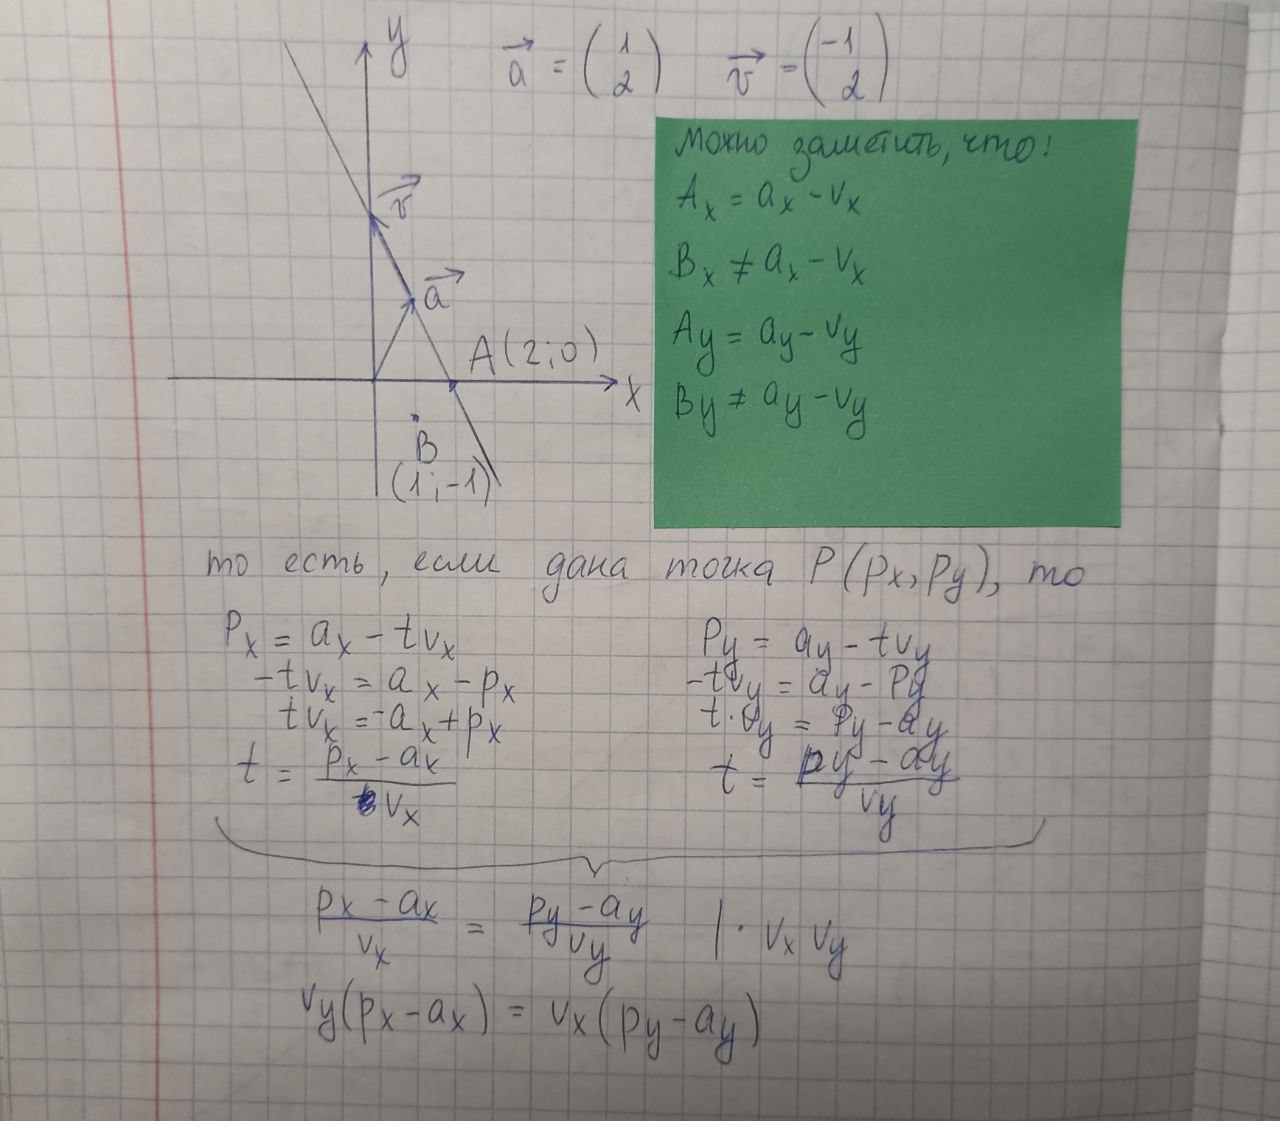 y
a⃗ = (1 2) v⃗ = (-1 2)
Можно заметить, что!
Aₓ = aₓ - vₓ
Bₓ ≠ aₓ - vₓ
Ay = ay - vy
By ≠ ay - vy
v⃗
a⃗
A(2;0)
x
B
(1;-1)
то есть, если дана точка P(px, py), то
Px = ax - tvx
-tvx = ax - px
tvx = -ax + px
t = (px - ax) / vx
Py = ay - tvy
-tvy = ay - Py
t·vy = Py - ay
t = (py - ay) / vy
(px - ax) / vx = (py - ay) / vy | · vx vy
vy(px - ax) = vx(py - ay)